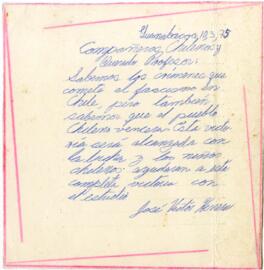 Guanabacoa, 18,3,75
Compañeros Chilenos y
Querido Profesor:
Sabemos los crímenes que
comete el fascismo en
Chile pero también
sabemos que el pueblo
Chileno vencerá. Esta victo
ria será alcanzada con
la lucha y los niños
chilenos ayudaran a esta
completa victoria con
el estudio
José Víctor